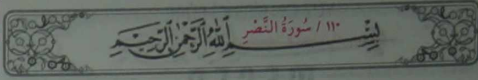 ١١٠ / سُورَةُ النَّصْرِ
بِسْمِ اللَّهِ الرَّحْمَٰنِ الرَّحِيمِ